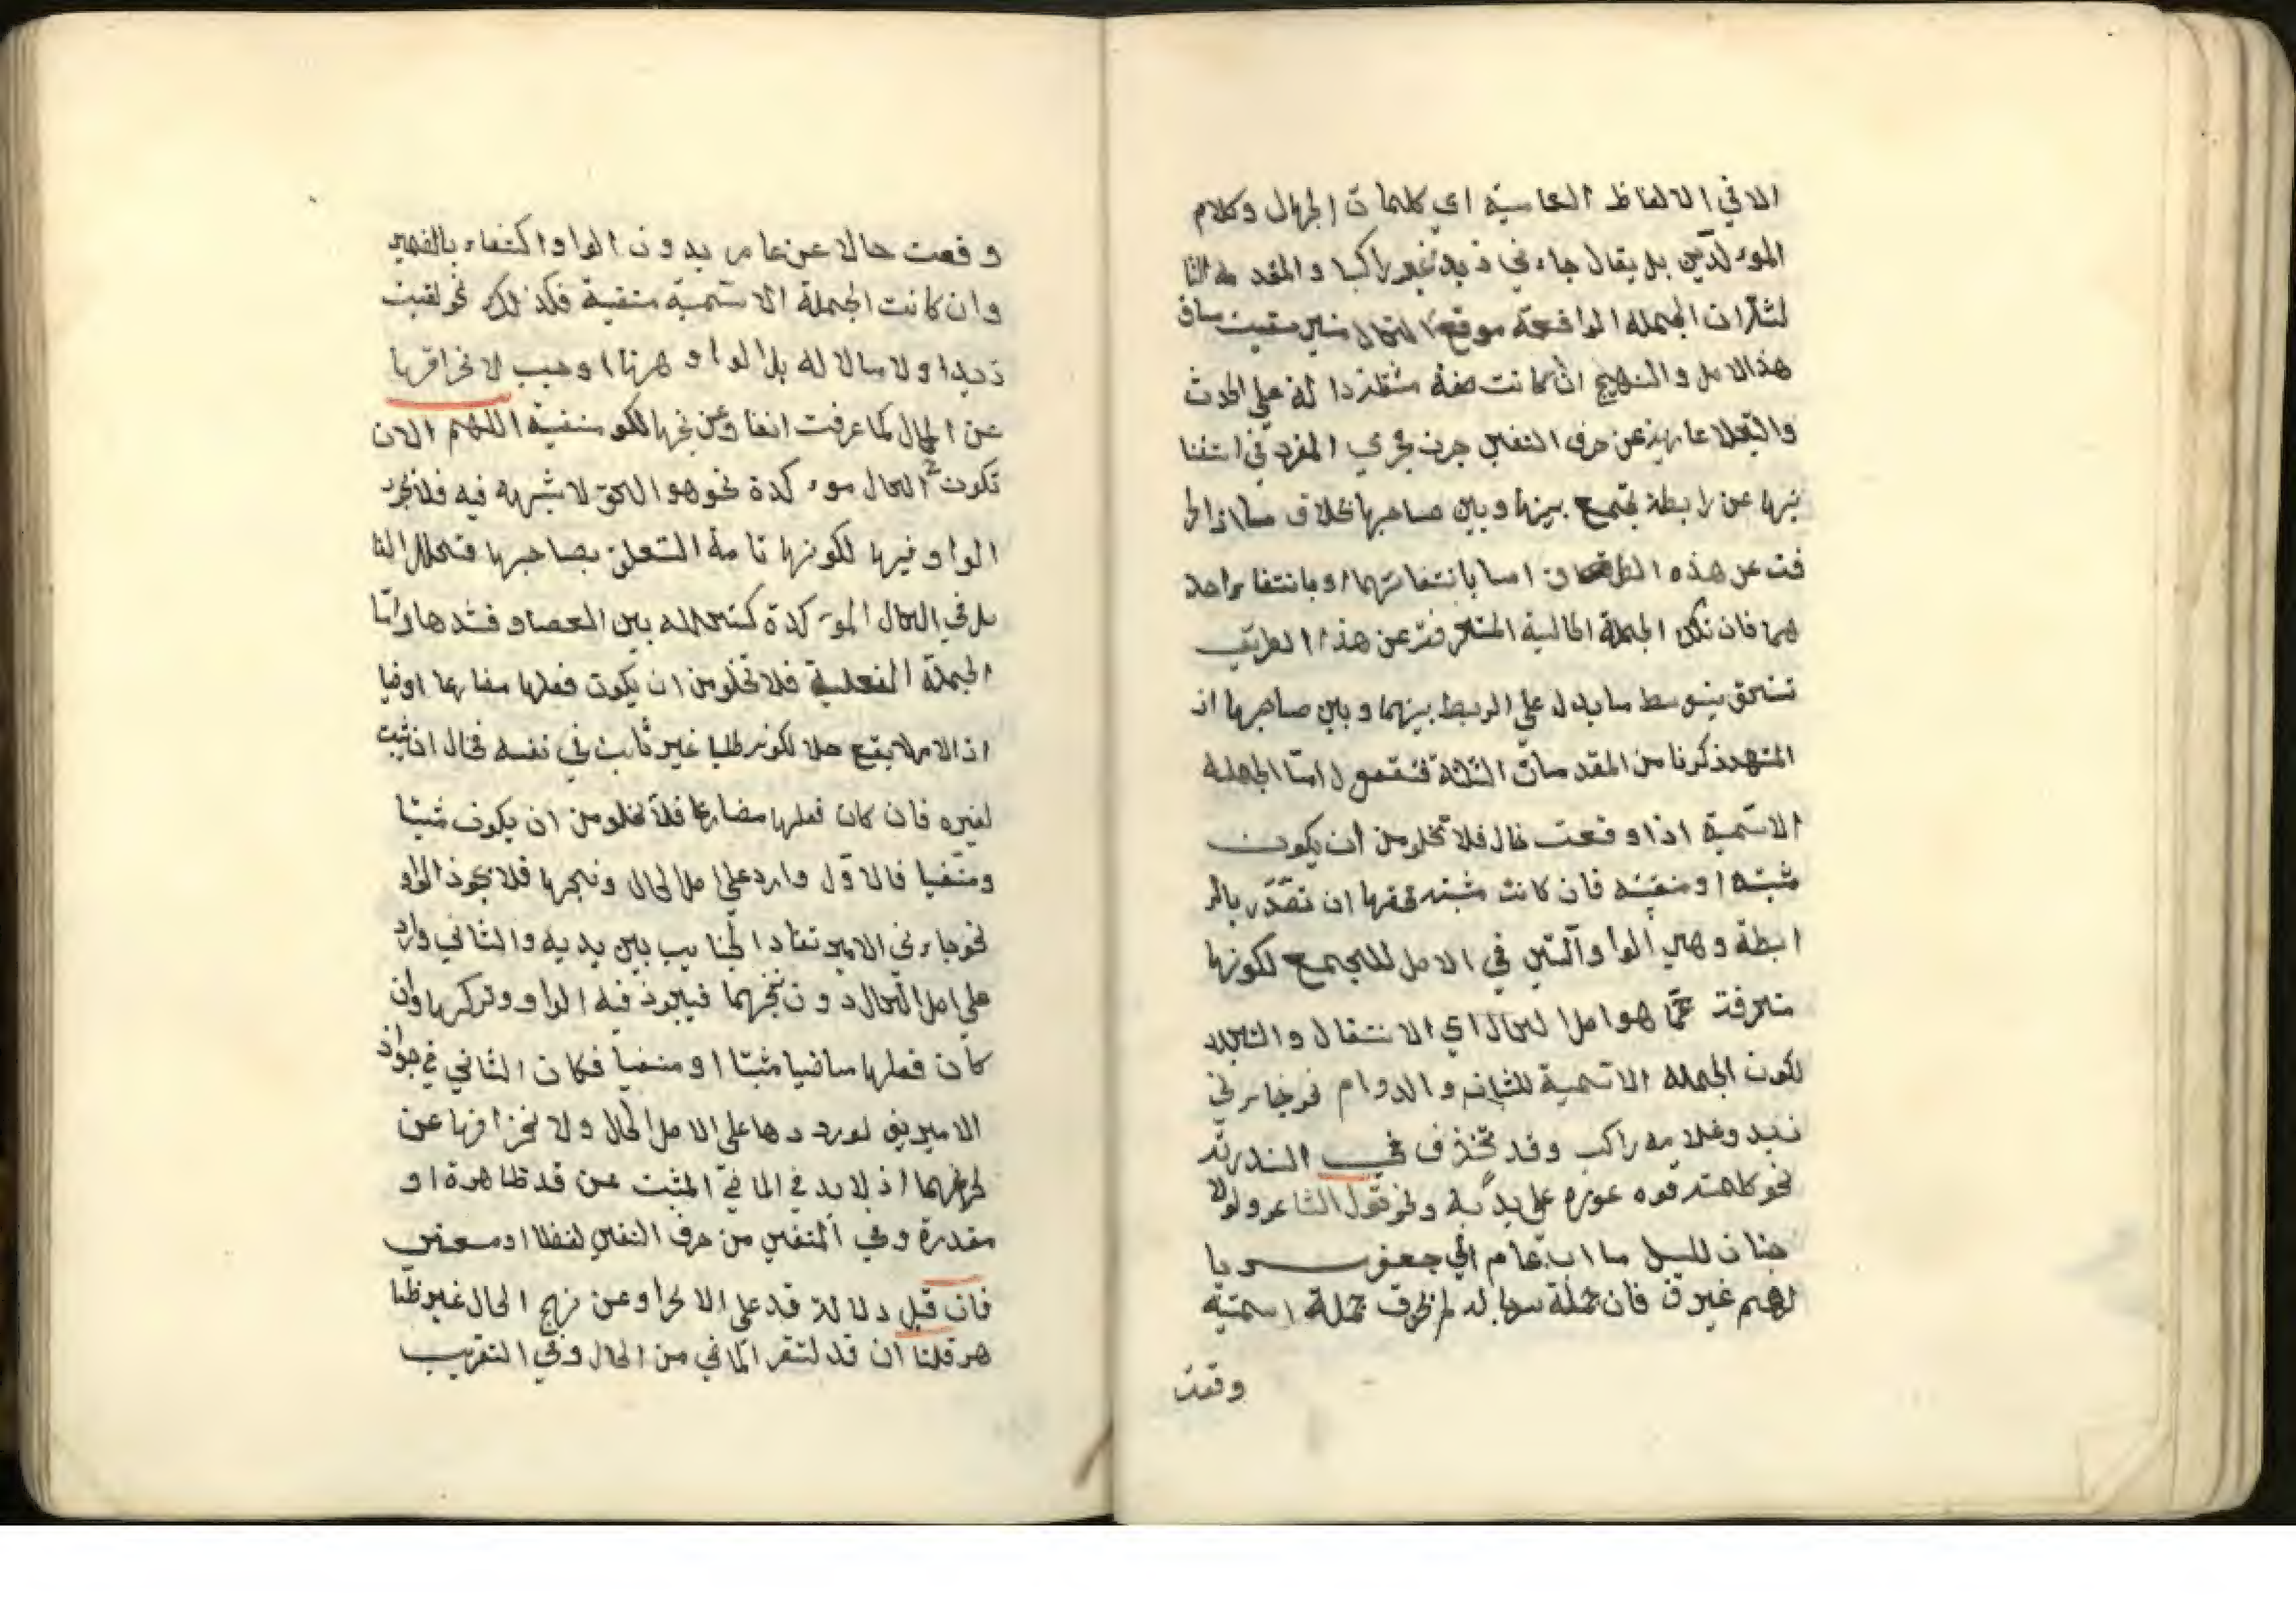 الا في الالفاظ العاسية اي كلمات الجهال وكلام
الموءلدين بل يقال جاءني زيد غير راكبا والمقدمة الثا
لثة ان الجملة الواقعة موقع الحال متى
هذا الاصل والنهج ان كانت صفة دالة على الحدث
عارية عن حرف النفي جرت مجرى المفرد في استغنا
ئها عن رابطة تجمع بينها وبين صاحبها بخلاف ما اذا انحر
فت عن هذه اما بانتفائهما او بانتفا واحد
هما فان تلك الجملة الحالية المنحرفة عن هذا الطريق
تستحق بتوسط ما يدل على الربط بينهما وبين صاحبها اذ
ذكرنا من المقدمات الثلاثة فنقول امّا الجملة
الاسمية اذا وقعت حال فلا تخلو من ان يكون
مثبته او منفيته فان كانت مثبته فحقها ان تصدّر بالر
ابطة وهي الواو التي في الاصل للجمع لكونها
منحرفة عمّا هو اصل الحال اي الانتقال والتجدد
لكون الجملة الاسمية للثبات والدوام نحو جاءني
زيد وغلامه راكب وقد تحذف في الندرة
نحو كلمته فوه على يديه ونحو قول الشاعر ولولا
جنان الليل ما اب عامر الى جعفر سربا
لهم غير فان جملة سرباله لم يخرق جملة اسميّة
وقعت
وقعت حالا عن عامر بدون الواو اكتفاء بالضمير
وان كانت الجملة الاسميّة منفية فكذلك نحو لقيت
زيدا ولا مالا له بل الواو ههنا اوجب لانحرافها
عن الحال كما عرفت انفا وعن نهجها لكو منفية اللهم الا ان
تكون الحال موءكدة نحو هو الحق لا شبهة فيه فلا يجوز
الواو فيها لكونها تامة التعلق بصاحبها فتخلل الفا
صل في الحال الموءكدة كتخلله بين العصا وقشرها وامّا
الجملة الفعلية فلا تخلو من ان يكون فعلها مضارعا او ماضيا
اذ الامر لا يقع حلا لكونه طلبا غير ثابت في نفسه فحال ان يثبت
لغيره فان كان فعلها مضارعا فلا يخلو من ان يكون مثبتا
ومنفيا فالاوّل وارد على اصل الحال ونهجها فلا يجوذ الواو
نحو جاءني الامير تقاد الجنايب بين يديه والثاني وارد
على اصل الحال دون نهجهما فيجوذ فيه الواو وتركها وان
كان فعلها ماضيا مثبتا او منفيا فكان الثاني في جواز
الاميرين لورودها على الاصل الحال ولانحرافها عن
نهجهما اذ لا بد في الماضي المثبت من قد ظاهرة او
مقدرة وفي المنفي من حرف النفي لفظا او معنى
فان قيل دلالة قد على الانحراف عن نهج الحال غير ظا
هر قلنا ان قد لتقر الماضي من الحال وفي التقريب